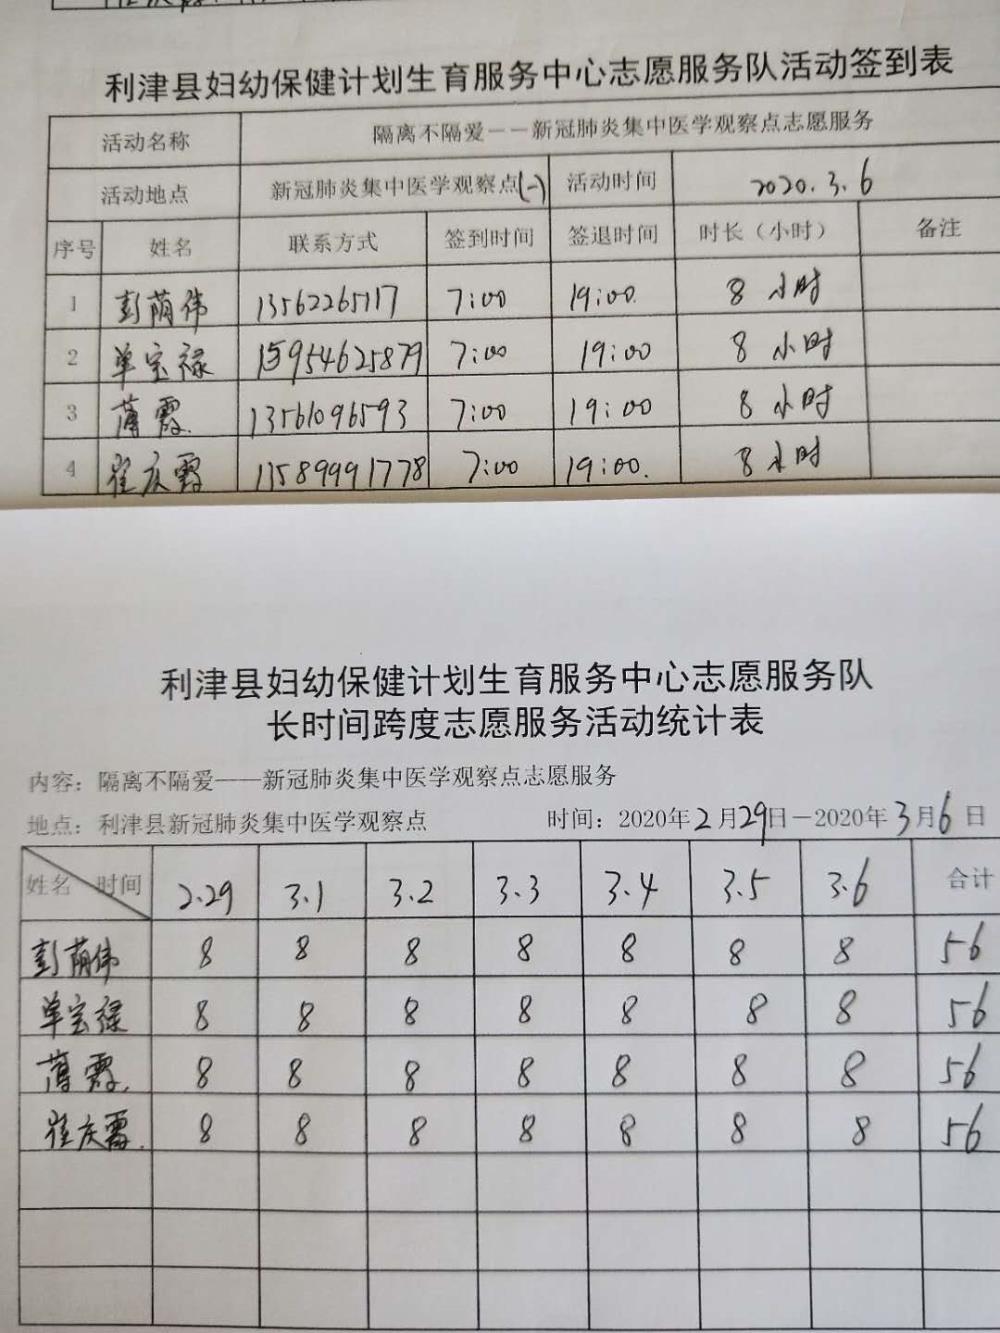 利津县妇幼保健计划生育服务中心志愿服务队活动签到表
活动名称 隔离不隔爱——新冠肺炎集中医学观察点志愿服务
活动地点 新冠肺炎集中医学观察点(一) 活动时间 2020.3.6
序号 姓名 联系方式 签到时间 签退时间 时长（小时） 备注
1 彭荫伟 13562265117 7:00 19:00. 8 小时
2 单宝禄 15954625879 7:00 19:00 8 小时
3 薄霞. 13561096593 7:00 19:00 8 小时
4 崔庆霞 11589991778 7:00 19:00. 8 小时
利津县妇幼保健计划生育服务中心志愿服务队
长时间跨度志愿服务活动统计表
内容：隔离不隔爱——新冠肺炎集中医学观察点志愿服务
地点：利津县新冠肺炎集中医学观察点 时间：2020年2月29日－2020年3月6日
姓名 时间 2.29 3.1 3.2 3.3 3.4 3.5 3.6 合计
彭荫伟 8 8 8 8 8 8 8 56
单宝禄 8 8 8 8 8 8 8 56
薄霞. 8 8 8 8 8 8 8 56
崔庆霞. 8 8 8 8 8 8 8 56